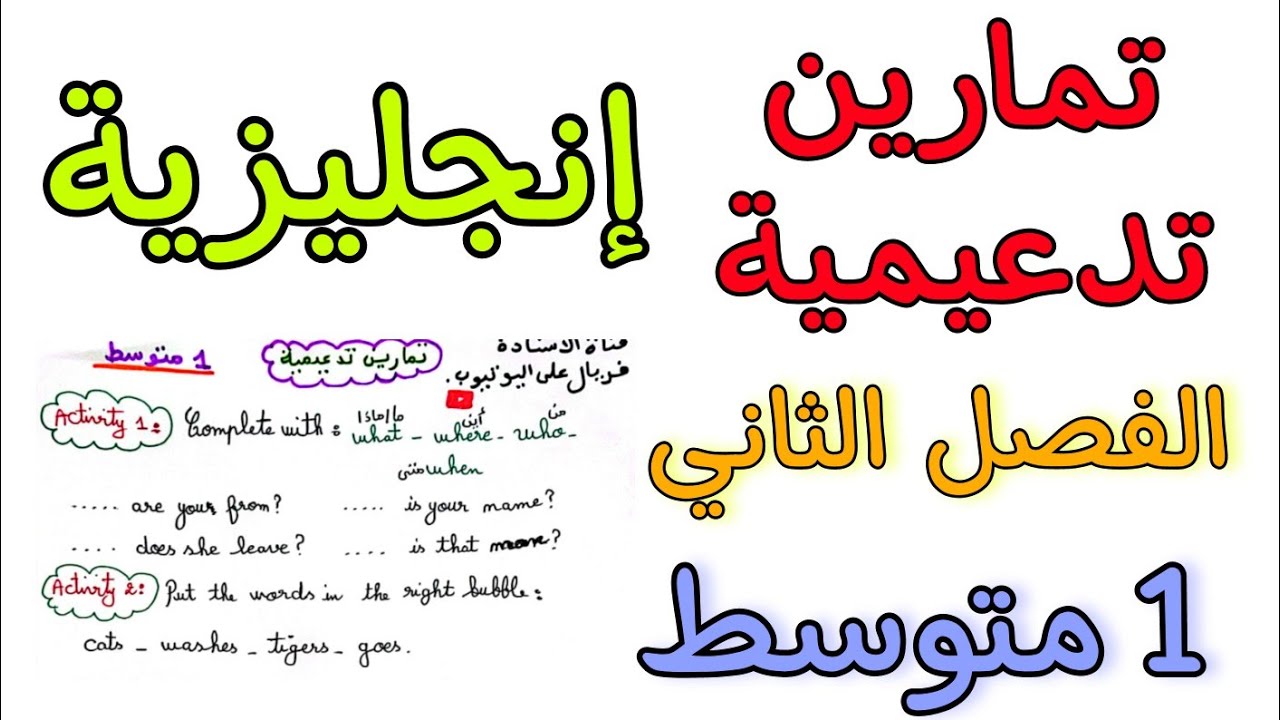 تمارين
تدعيمية
إنجليزية
الفصل الثاني
1 متوسط
قناة الأستاذة
فريال على اليوتيوب.
تمارين تدعيمية
1 متوسط
Activity 1: Complete with: what - where - who -
ما/ماذا أين من
when متى
..... are your from? ..... is your name?
..... does she leave? .... is that ?
Activity 2: Put the words in the right bubble:
cats _ washes _ tigers _ goes.